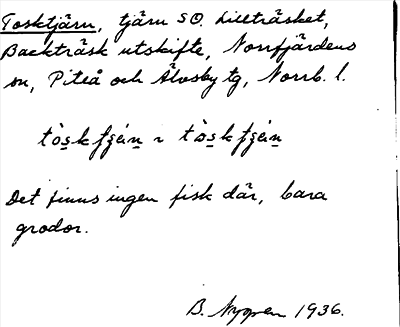 Tosktjärn, tjärn SO. Lillträsket,
Backträsk utskifte, Norrfjärdens
sn, Piteå och Älvsby tg, Norrb. l.
Det finns ingen fisk där, bara
grodor.
B. Nygren 1936.